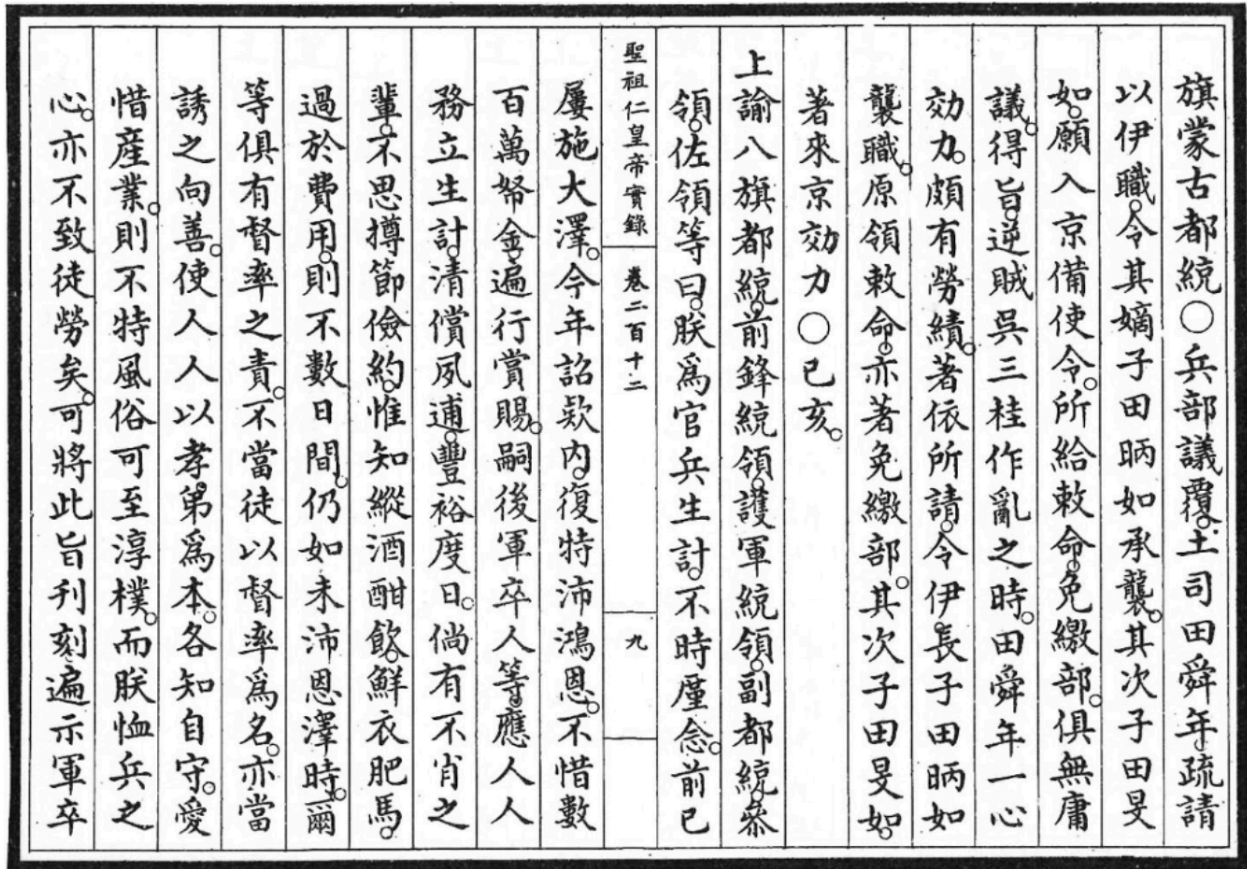 旗蒙古都統○兵部議覆。土司田舜年。疏請
以伊職。令其嫡子田昞如承襲。其次子田旻
如。願入京備使令。所給敕命。免繳部。俱無庸
議。得旨。逆賊吳三桂作亂之時。田舜年一心
効力。頗有勞績。著依所請。令伊長子田昞如
襲職。原領敕命。亦著免繳部。其次子田旻如。
著來京効力○己亥。
上諭八旗都統。前鋒統領。護軍統領。副都統。參
領。佐領等曰。朕為官兵生計。不時廑念。前已
聖祖仁皇帝實錄 卷二百十二 九
屢施大澤。今年詔欵內。復特沛鴻恩。不惜數
百萬帑金。遍行賞賜。嗣後軍卒人等。應人人
務立生計。清償夙逋。豐裕度日。倘有不肖之
輩。不思撙節儉約。惟知縱酒酣飲。鮮衣肥馬。
過於費用。則不數日間。仍如未沛恩澤時。爾
等俱有督率之責。不當徒以督率為名。亦當
誘之向善。使人人以孝弟為本。各知自守。愛
惜產業。則不特風俗可至淳樸。而朕恤兵之
心。亦不致徒勞矣。可將此旨刊刻遍示軍卒